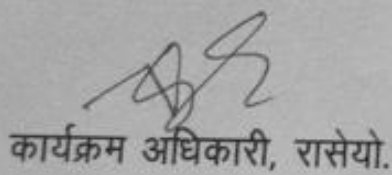 कार्यक्रम अधिकारी, रासेयो.